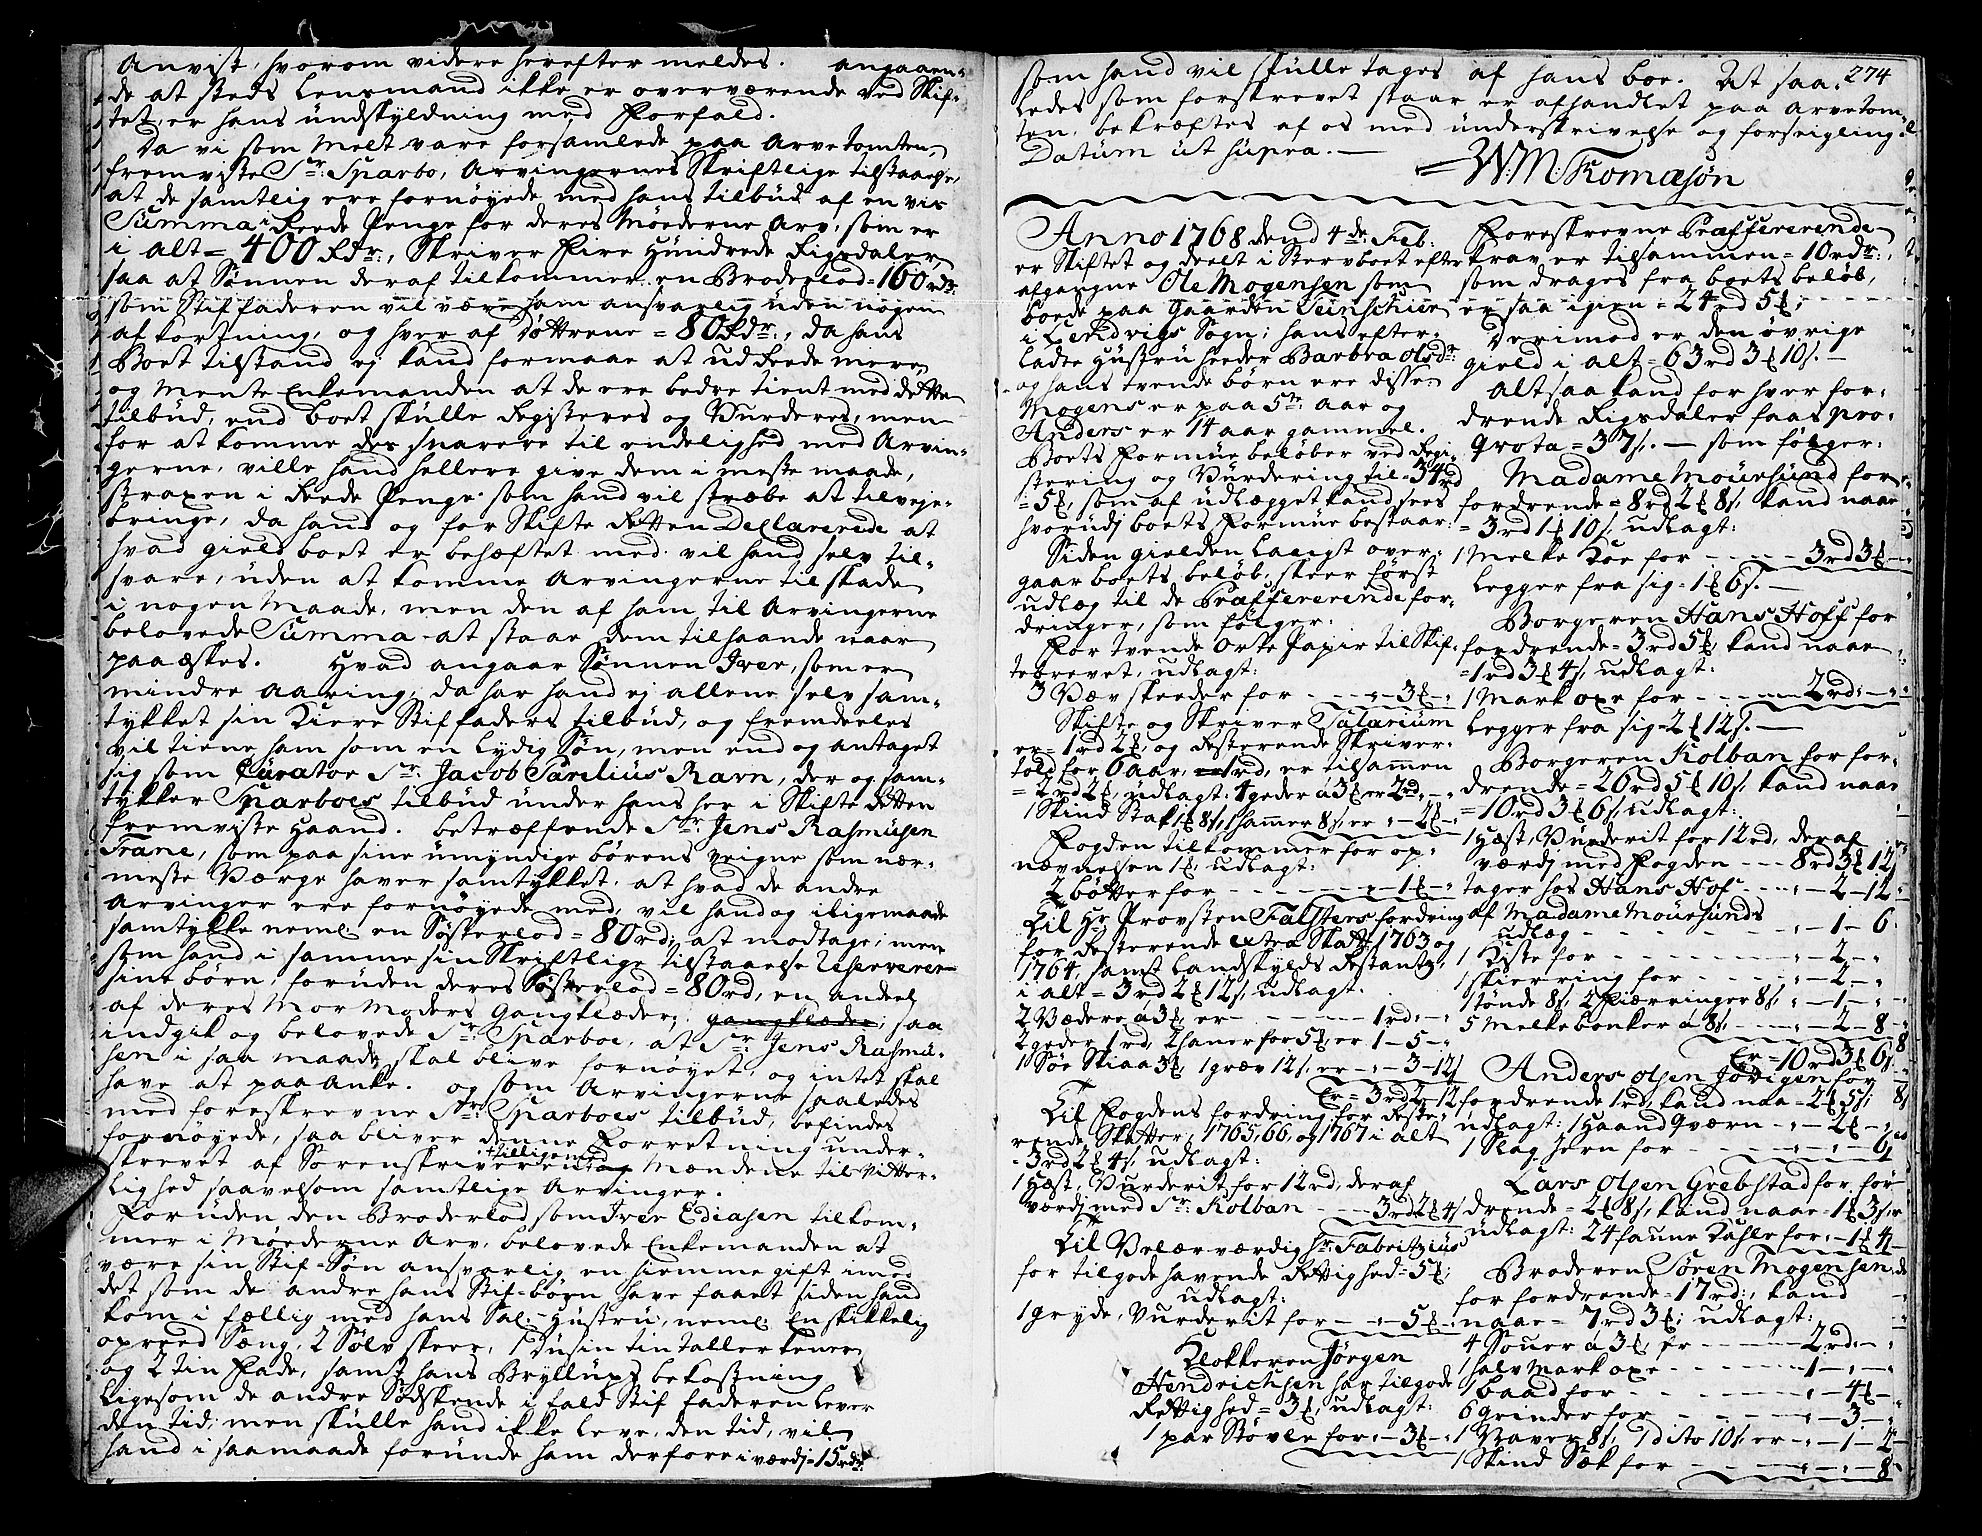 Anvist, hvorom videre herefter meldes. angaaen-
de at steds Lensmand ikke er overværende ved Skif-
tet, er hans undskyldning med Forfald.
Da vi som Melt vare forsamlede paa Arvetomten,
fremviste Sr. Sparbo, Arvingernes Skriftlige tilstaaelse,
at de samtlig ere fornøyede med hans tilbud af en vis
Summa i Reede Penge for deres Møderne Arv, som er
i alt = 400 Rdr:, Skriver Fire Hundrede Rigsdaler,
saa at Sønnen deraf tilkommer en Broderlod = 160 rdr:
som Stiffaderen vil være ham ansvarlig uden nogen
afkortning, og hver af Døttrene = 80 Rdr:, da hans
Boet tilstand ej kand formaae at udReede mere,
og Mente Enkemanden at de ere bedre tient med dette
tilbud, end boet skulle Registeres og Vurderes, men
for at komme des snarere til endelighed med Arvin-
gerne, ville hand hellere give dem i meste maade,
straxen i Reede Penge som hand vil stræbe at tilveje-
bringe, da hand og for Skifte Retten Declarerede at
hvad gield boet er behæftet med vil hand selv til-
svare, uden at komme Arvingerne til skade
i nogen Maade, men den af ham til Arvingerne
belovede Summa at staae dem tilhaande naar
paaæskes. Hvad angaar Sønnen Iver, som er
mindre aaring, da har hand ej allene selv sam-
tykket sin Kiere Stiffaders tilbud, og fremdeeles
vil tiene ham som en lydig Søn, men end og antaget
sig som Curator Sr. Jacob Parelius Ravn, der og sam-
tykker Sparboes tilbud under hans her i Skifte Retten
fremviste Haand. betræffende Sr. Jens Rasmusen
Trane, som paa sine umyndige børens veigne som nær-
meste Værge haver samtykket, at hvad de andre
Arvinger ere fornøyede med, vil hand og iligemaade
samtykke neml. en Søsterlod = 80 rd: at modtage; men
som hand i samme sin Skriftlige tilstaaelse Reserverer
sine børn, foruden deres Søsterlod = 80 rd, en andeel
af deres Mor Moders Gangklæder, gangklæder, saa
indgik og belovede Sr. Sparboe, at Sr. Jens Rasmu-
sen i saa maade skal blive fornøyet, og intet skal
have at paaAnke. og som Arvingerne saaledes
med foreskrevne Sr. Sparboes tilbud, befindes
fornøyede, saa bliver denne Forretning under-
skrevet af Sorenskriveren tilligemed Mændene til Vitter-
lighed saavelsom samtlige Arvinger.
Foruden den Broderlod som Iver Ediasen tilkom-
mer i Møderne Arv, belovede Enkemanden at
være sin Stif-Søn ansvarlig en hiemmegift imod
det som de andre hans Stif-børn have faaet siden hand
kom i fællig med hans Sal. Hustru, neml. En skikkelig
opreed Sæng, 2 Sølv skeer, 1 Dusin tin tallerkener
og 2 tin Fade, samt hans Bryllups bekostning
Ligesom de andre Sødskende i fald Stif faderen Lever
den tid; men skulle hand ikke leve den tid, vil
hand i saamaade forunde ham derfore i værdj = 15 rdr:
274
som hand vil skulle tages af hans boe. At saa-
ledes som forskrevet staar er afhandlet paa Arvetom-
ten, bekræftes af os med underskrivelse og forseigling
Datum ut supra.
W. M. Thomæsøn
Anno 1768 dend 4de Feb:
er Skiftet og deelt i Stervboet efter
afgangne Ole Mogensen som
boede paa Gaarden
i Lendvigs Sogn; hans efter-
ladte Hustru heeder Barbra Olsdr:
og hans tvende børn ere disse
Mogens er paa 5te aar og
Anders er 14 aar gammel.
Boets Formue beløber ved Regi-
stering og Vurdering til = 34 rd
= 5 ₰, som af udlægget kand sees
hvorudj boets Formue bestaar.
Siden gielden Langt over-
gaar boets beløb, skeer først
udlæg til de Præffererende for-
dringer, som følger:
For tvende Orte Papir til Skif-
tebrevet, udlagt:
3 Væv skeeder for - - - 3 ₰ -
Skifte og Skriver Salarium
er = 1 rd 2 ₰, og Resterende Skriver-
told for 6 aar, 1 rd, er tilsammen
= 2 rd 2 ₰, udlagt: 4 geder a 3 ₰ er 2 rd -
1 Skind Stak 1 ₰ 8 s, 1 hammer 8 s, er - 2 ₰ -
Fogden tilkommer for op-
nævnelsen 1 ₰, udlagt:
2 bøtter for - - - 1 ₰ -
Til Hr. Provsten Falsters fordring
for Resterende extra Skatt 1763 og
1764, samt Landskylds Restantz,
i alt = 3 rd 2 ₰ 12 s, udlagt.
2 Vædere a 3 ₰, er - - - 1 rd -
2 geder 1 rd, 2 haner for 5 ₰, er 1 - 5 -
1 Søe Skiaa 3 ₰, 1 græv 12 s, er - 3 - 12 s
Er = 3 rd 2 - 12
Til Fogdens fordring for Reste-
rende Skatter, 1765, 66, og 1767 i alt
= 3 rd 2 ₰ 4 s, udlagt:
1 Hæst, Vurderit for 12 rd, deraf
værdj med Sr. Kolban - - - 3 rd 2 ₰ 4 s
Til Velærværdig Hr. Fabritzius
for tilgodehavende Rettighed = 5 ₰,
udlagt:
1 gryde, Vurderit for - - 5 ₰ -
Klokkeren Jørgen
Hendrichsen har tilgode
Rettighed = 3 ₰, udlagt:
1 par Støvle for - 3 ₰ -
Foreskrevne Præffererende
krav er tilsammen = 10 rdr:,
som drages fra boets beløb,
er saa igien = 24 rd 5 ₰;
Derimod er den øvrige
gield i alt = 63 rd 3 ₰ 10 s. -
Altsaa kand for hver for-
drende Rigsdaler faaes pro-
Qvota = 37 s. - som følger:
Madame Mouesund for
fordrende = 8 rd 2 ₰ 8 s, kand naae
= 3 rd 1 ₰ 10 s, udlagt:
1 Melke Koe for - - - 3 rd 3 ₰ -
Legger fra sig = 1 ₰ 6 s. -
Borgeren Hans Hoff for
fordrende = 3 rd 5 ₰, kand naae
= 1 rd 3 ₰ 4 s, udlagt:
1 Mark oxe for - - - 2 rd -
Legger fra sig = 2 ₰ 12 s. -
Borgeren Kolban for for-
drende = 26 rd 5 ₰ 10 s, kand naae
= 10 rd 3 ₰ 6 s, udlagt:
1 Hæst, Vurderit for 12 rd, deraf
værdj med Fogden - - - 8 rd 3 ₰ 12 s
tager hos Hans Hof - - - 2 - 12
af Madame Mouesunds
udlæg - - - 1 - 6
1 Kiste for - - - 2 -
1 skierring for - - - 2 -
1 tønde 8 s, 2 Kiærringer 8 s, - 1 -
5 Melke bonker a 8 s, - - 2 - 8
Er = 10 rd 3 ₰ 6 s
Anders Olsen Jørigen for
fordrende 1 rd, kand naae = 2 ₰ 5 s,
udlagt: 1 Haand Qværn - - 2 ₰ -
1 Slag Jern for - - - 6 s
Lars Olsen Grebstad for for-
drende = 2 ₰ 8 s, kand naae = 1 ₰ 3 s,
udlagt: 24 faune Kuhle for - 1 ₰ 4
Broderen Søren Mogensen
for fordrende = 17 rd:, kand
naae = 7 rd 3 ₰, udlagt:
4 Souer a 3 ₰, er - - 2 rd -
1 halv Mark oxe - - - 1 - -
1 baad for - - - 4 ₰ -
6 grinder for - - - 3 -
1 Naver 8 s, 1 dito 10 s, er - 1 - 2
1 Skind Sæk for - - - 8